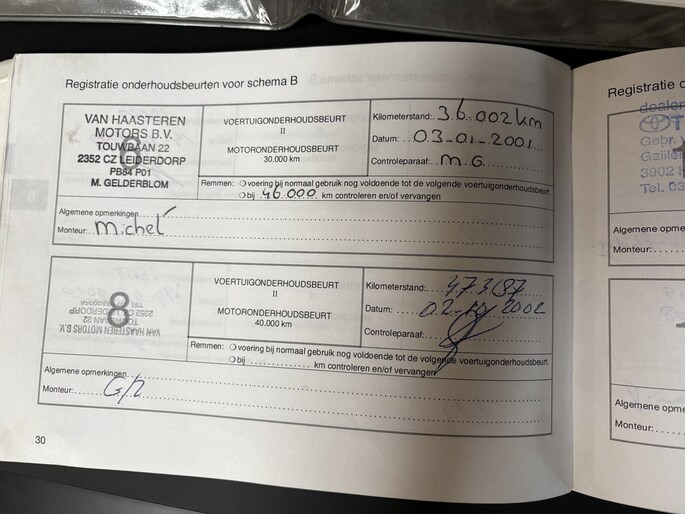 Registratie onderhoudsbeurten voor schema B
VAN HAASTEREN
MOTORS B.V.
TOUWBAAN 22
2352 CZ LEIDERDORP
PB84 P01
M. GELDERBLOM
6
VOERTUIGONDERHOUDSBEURT
II
MOTORONDERHOUDSBEURT
30.000 km
Kilometerstand: 36.002km
Datum: 03-01-2001
Controleparaaf: M.G.
Remmen: voering bij normaal gebruik nog voldoende tot de volgende voertuigonderhoudsbeurt.
bij 46.000 km controleren en/of vervangen
Algemene opmerkingen
Monteur: Michel
8
VAN HAASTEREN MOTORS B.V.
TOUWBAAN 22
VOERTUIGONDERHOUDSBEURT
II
MOTORONDERHOUDSBEURT
40.000 km
Kilometerstand:
Datum: 2002
Controleparaaf:
Remmen: voering bij normaal gebruik nog voldoende tot de volgende voertuigonderhoudsbeurt.
bij km controleren en/of vervangen
Algemene opmerkingen
Monteur:
30
Registratie
dealer
Gebr.
Tel. 03
Algemene opme
Monteur:
Algemene opme
Monteur: